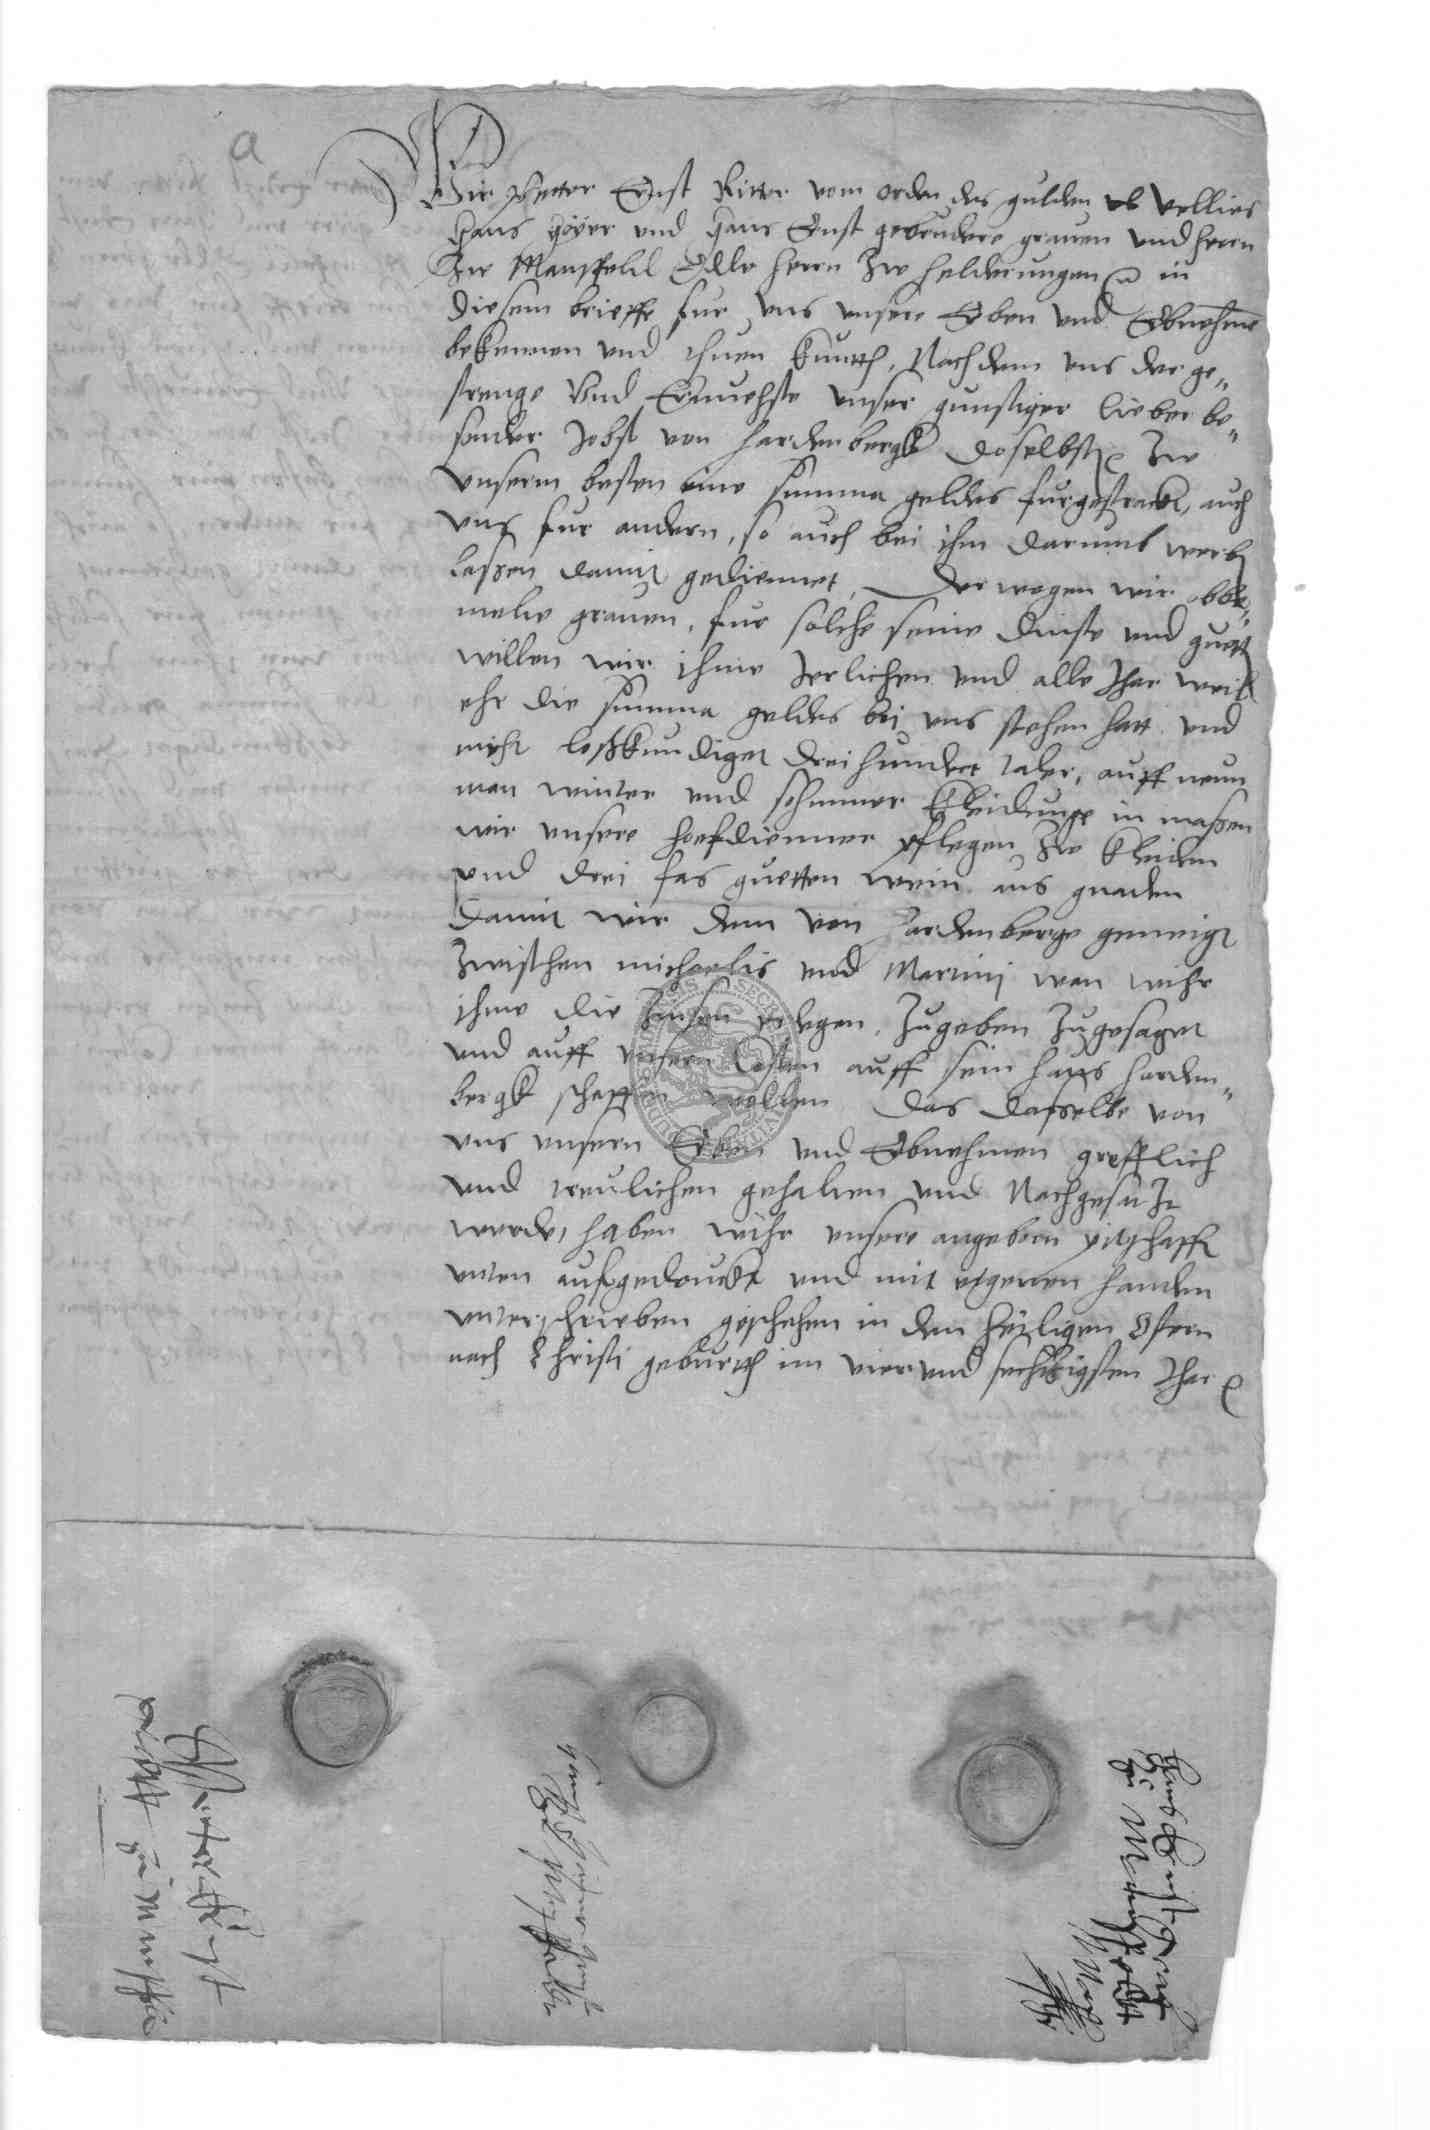 a
Wir Petter Ernst Ritter vom orden des gulden vellies
Hans Hoyer und Hans Ernst gebrudere graven und herrn
Zw Mansfeld Edle herrn Zw helderungen in
diesem brieffe fur uns unsere Erben und Erbnehmen
bekennen und thuen kuntth, Nachdem uns der ge„
strenge Und Ernvehste unser gunstiger lieber be„
sonder Jobst von hardenbergk doselbst Zw
unserm besten eine summa geldes furgestrackt, auch
uns fur andern, so auch bei ihm darumb werben
lassen damit gedienet, Derwegen wir obbe„
melte graven, fur solche seine dinste und guett
willen wir ihme Jerlichen und alle Jhar weil
ehr die summa geldes bei uns stehen hatt und
nicht losskundiget dreihundert taler, auff neun
man winter und sohmmer kleidunge in massen
wir unsere hoefdienner pflegen Zw kleiden
und drei fas guetten wein aus gnaden
damit wir dem von Hardenberge geneigt
Zwischen michaelis und Martini wan wihr
ihme die Zinsen erlegen, Zugeben Zugesaget
und auff unsern Costen auff sein haus harden„
bergk schaffen wollen Das dasselbe von
uns unsern Erben und Erbnehmen grefflich
und treulichen gehalten und Nachgesatzt
werde, haben wihr unsere angeborn pitschafft
unten aufgedruckt und mit eigenen handen
unterschrieben geschehen in den heiligen Ostern
nach Christi geburtth im vier und sechtzigsten Jhar
Peter Ernst
graff zu Mansfelt
Hans Hoier graff
zu Mansfeldt
Hans Ernst graff
zu Mansfeldt